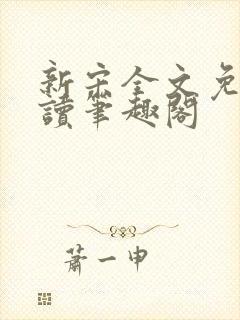 新宋全文免
讀筆趣閣
蕭一申